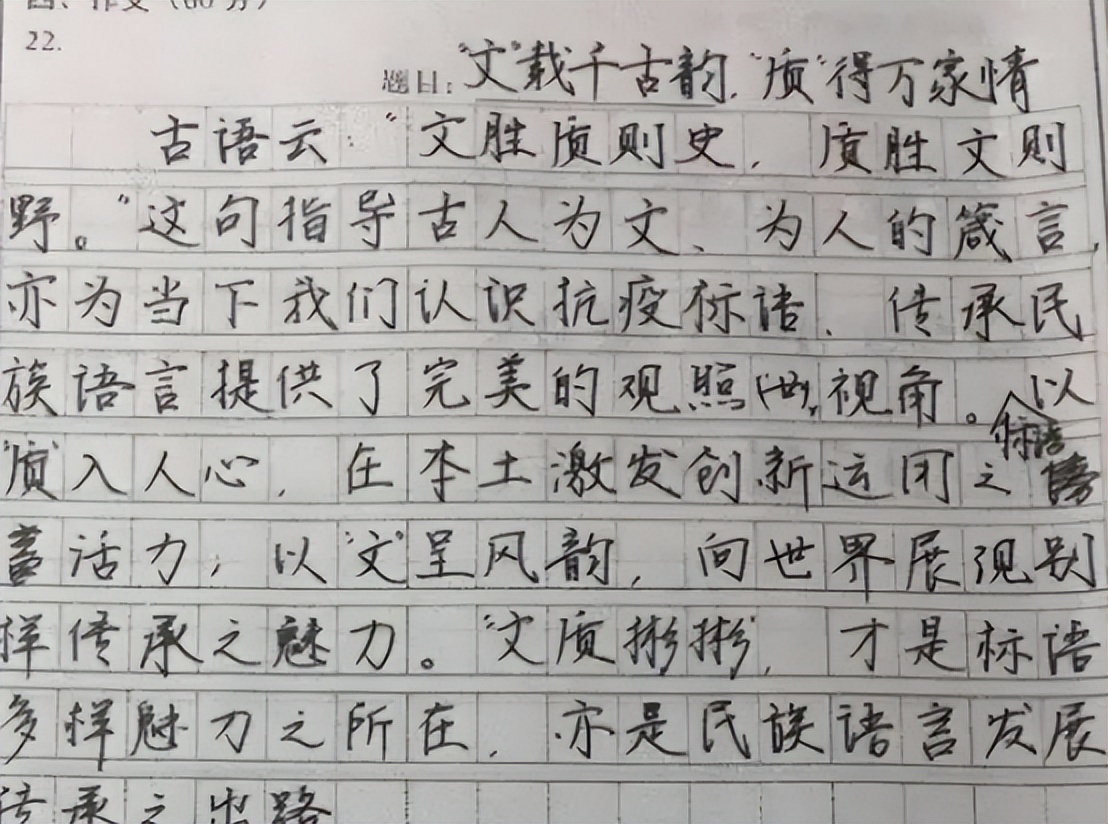 四、作文（60分）
22.
题目："文"载千古韵，"质"得万家情
古语云："文胜质则史，质胜文则
野。"这句指导古人为文、为人的箴言，
亦为当下我们认识抗疫标语、传承民
族语言提供了完美的观照视角。以
标语
"质"入人心，在本土激发创新运团之
活力；以"文"呈风韵，向世界展现别
样传承之魅力。"文质彬彬"，才是标语
多样魅力之所在，亦是民族语言发展
传承之出路